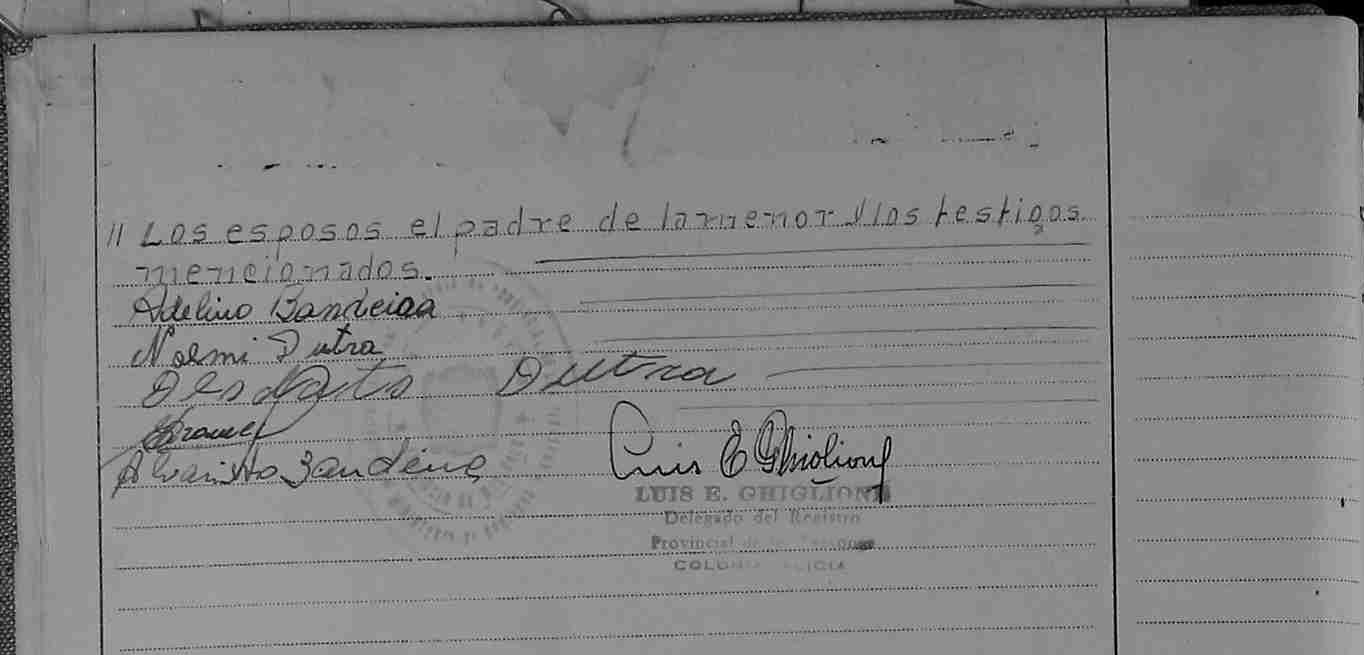 // Los esposos el padre de la menor y los testigos
mencionados.
Adelino Bandeira
Noemi Dutra
Dutra
Luis E Ghiglione
LUIS E. GHIGLIONE
Delegado del Registro
Provincial de las Personas
COLONIA ALICIA